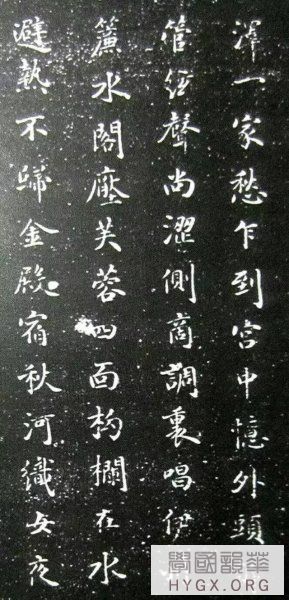 澤一家愁乍到宮中憶外頭
管絃聲尚澀側商調裏唱伊
簾水閣壓芙蓉四面枸欄在水
避熱不歸金殿宿秋河織女夜
學國韻華
HYGX.ORG